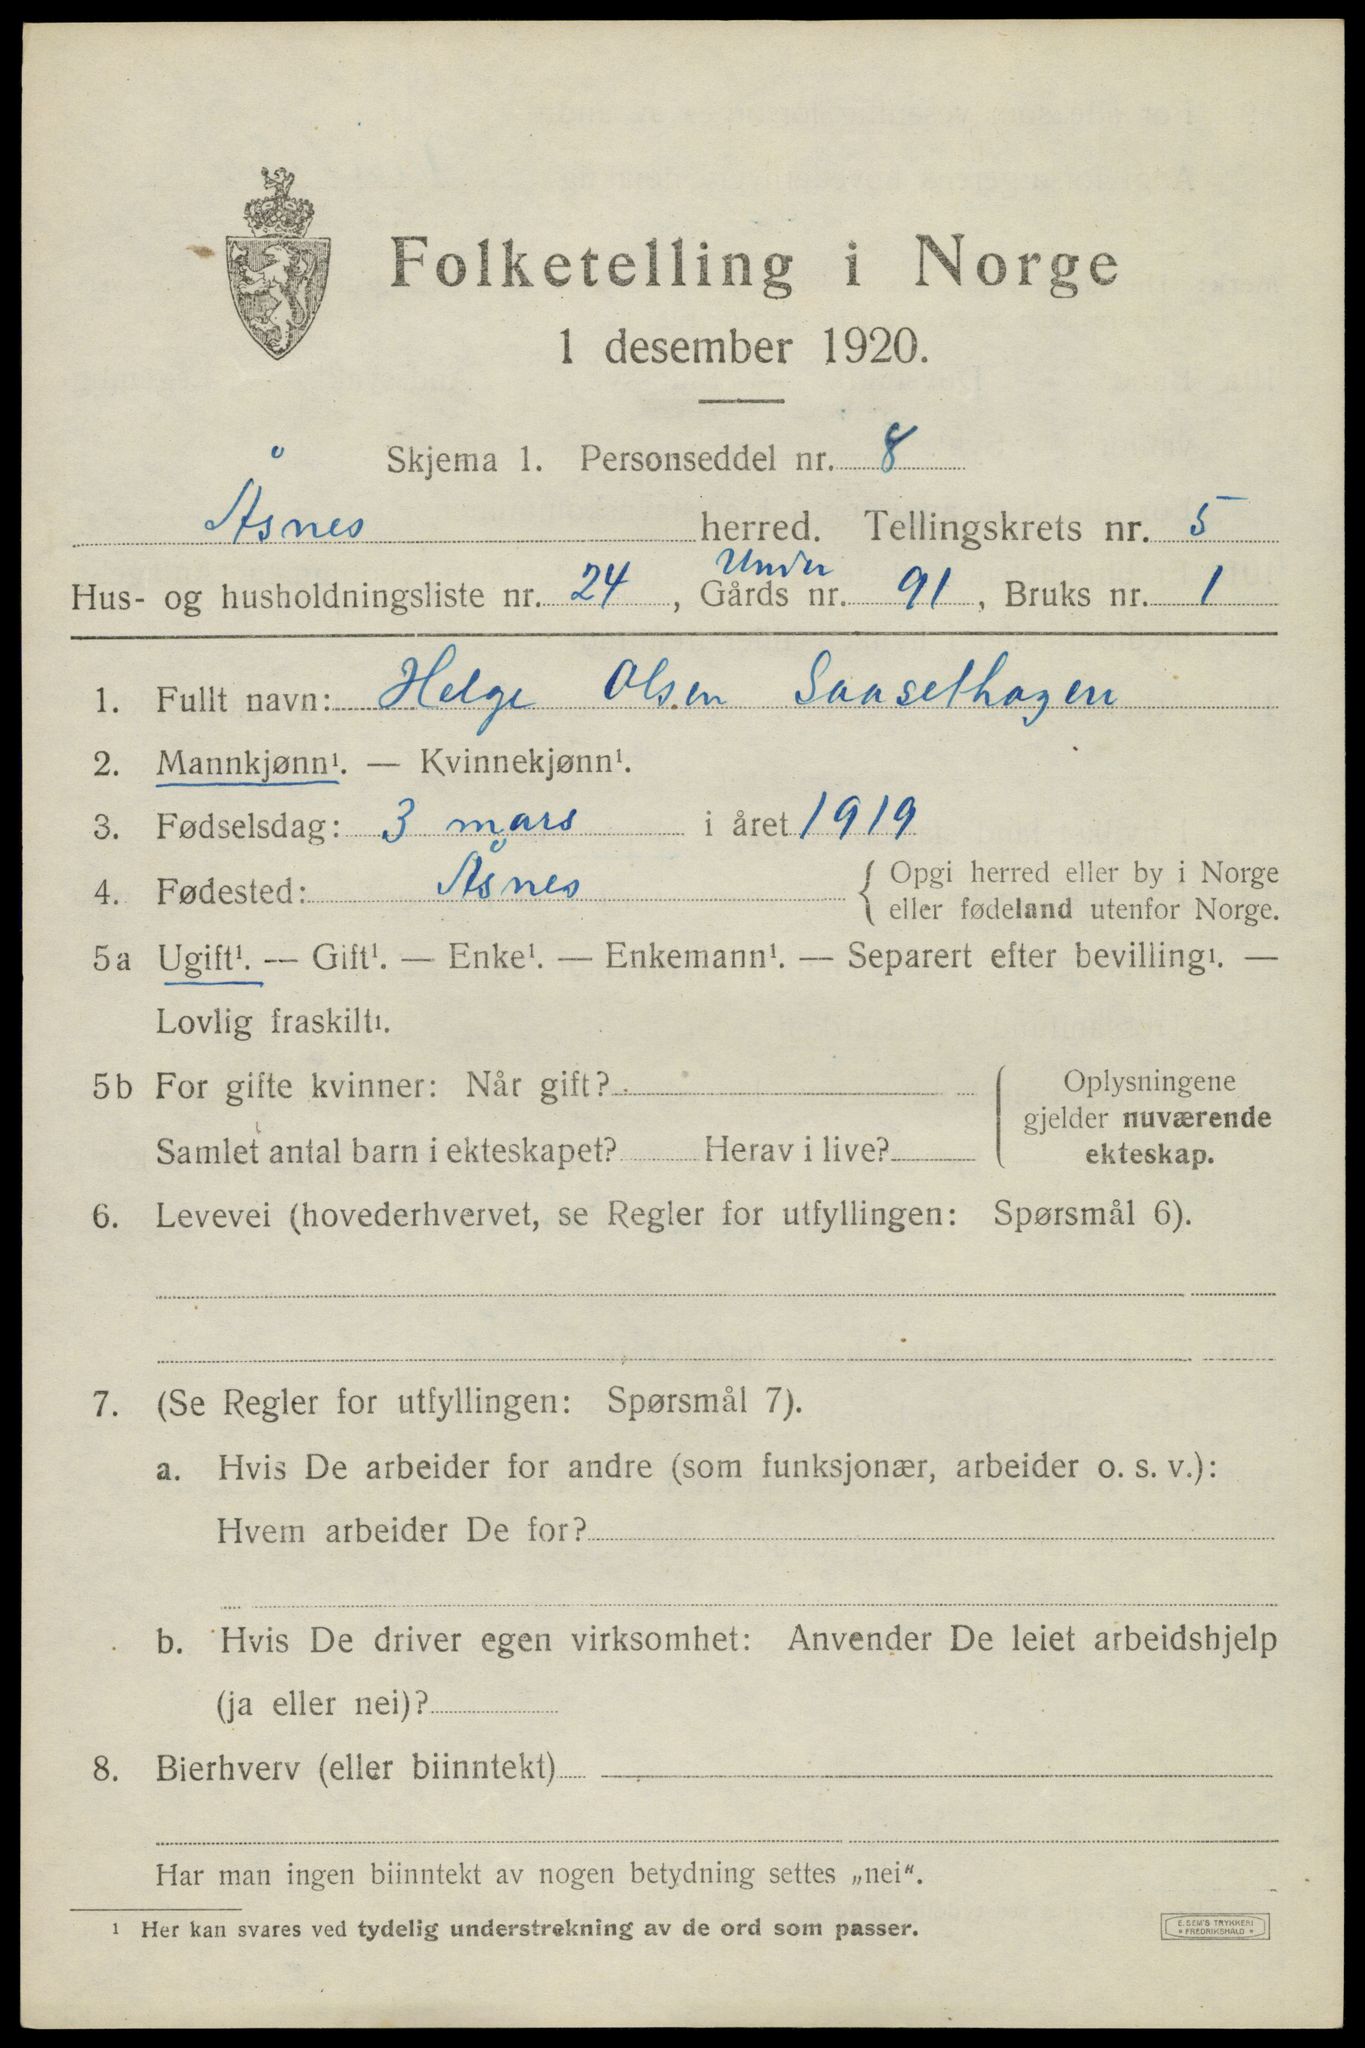 Folketelling i Norge
1 desember 1920.
Skjema 1. Personseddel nr. 8
Åsnes herred. Tellingskrets nr. 5
Under
Hus- og husholdningsliste nr. 24, Gårds nr. 91, Bruks nr. 1
1. Fullt navn: Helge Olsen Saasethagen
2. Mannkjønn¹. — Kvinnekjønn¹.
3. Fødselsdag: 3 mars i året 1919
4. Fødested: Åsnes { Opgi herred eller by i Norge
eller fødeland utenfor Norge.
5a Ugift¹. — Gift¹. — Enke¹. — Enkemann¹. — Separert efter bevilling¹. —
Lovlig fraskilt¹.
5b For gifte kvinner: Når gift?
Samlet antal barn i ekteskapet? Herav i live?
Oplysningene
gjelder nuværende
ekteskap.
6. Levevei (hovederhvervet, se Regler for utfyllingen: Spørsmål 6).
7. (Se Regler for utfyllingen: Spørsmål 7).
a. Hvis De arbeider for andre (som funksjonær, arbeider o. s. v.):
Hvem arbeider De for?
b. Hvis De driver egen virksomhet: Anvender De leiet arbeidshjelp
(ja eller nei)?
8. Bierhverv (eller biinntekt)
Har man ingen biinntekt av nogen betydning settes „nei“.
¹ Her kan svares ved tydelig understrekning av de ord som passer.
E. SEM'S TRYKKERI
* FREDRIKSHALD *